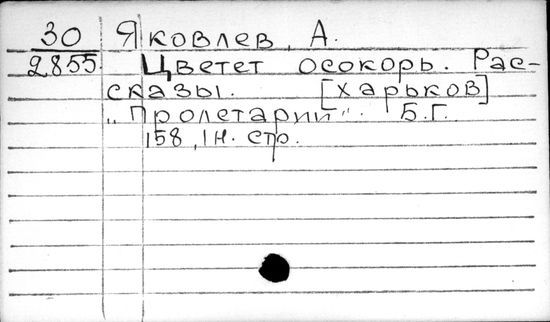 30 Яковлев, А.
2855 Цветет осокорь. Рас-
сказы. [Харьков]
„Пролетарий". Б.Г.
158, 1 н. стр.